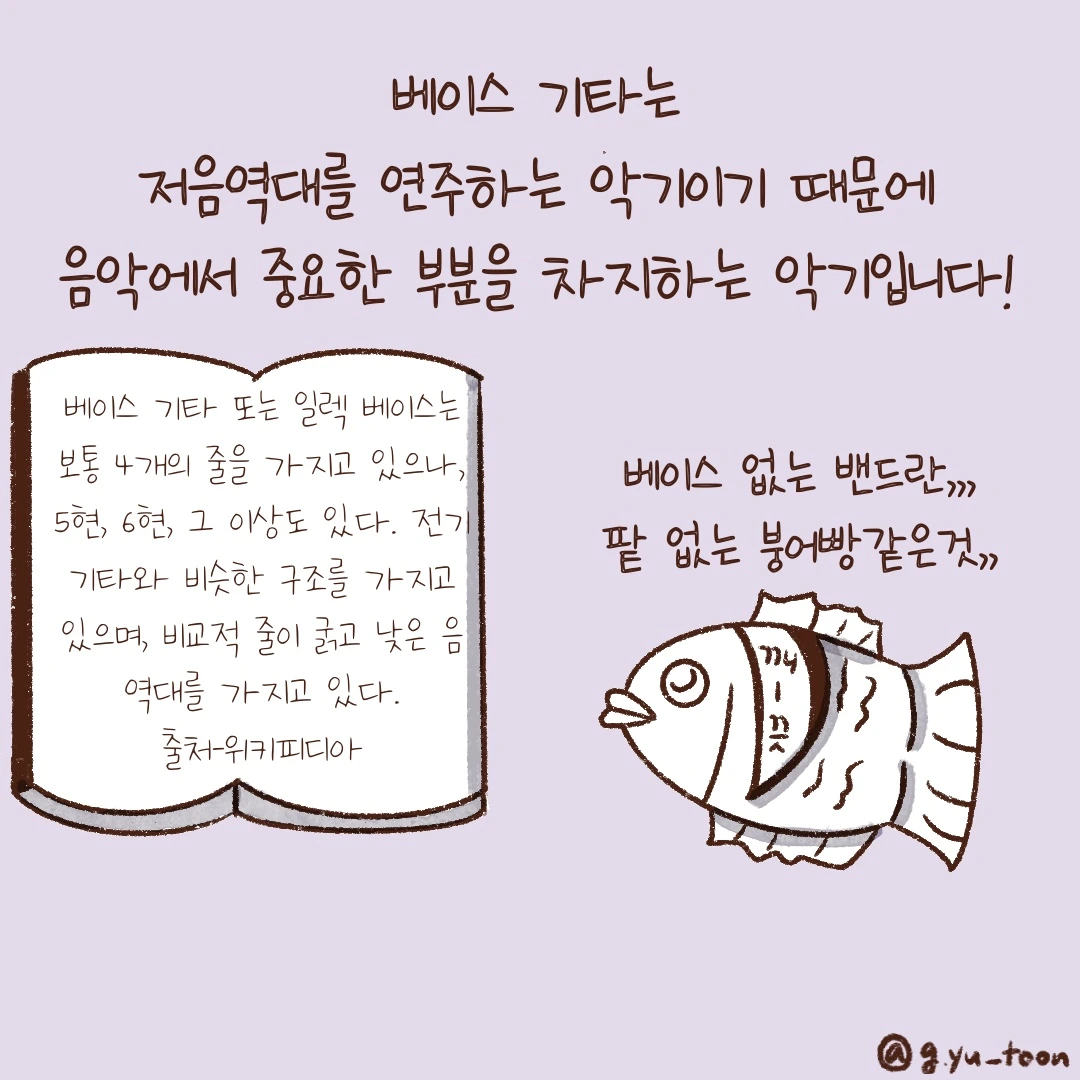 베이스 기타는
저음역대를 연주하는 악기이기 때문에
음악에서 중요한 부분을 차지하는 악기입니다!
베이스 기타 또는 일렉 베이스는
보통 4개의 줄을 가지고 있으나,
5현, 6현, 그 이상도 있다. 전기
기타와 비슷한 구조를 가지고
있으며, 비교적 줄이 굵고 낮은 음
역대를 가지고 있다.
출처-위키피디아
베이스 없는 밴드란,,,
팥 없는 붕어빵같은것,,
깨
끗
@g.yu_toon